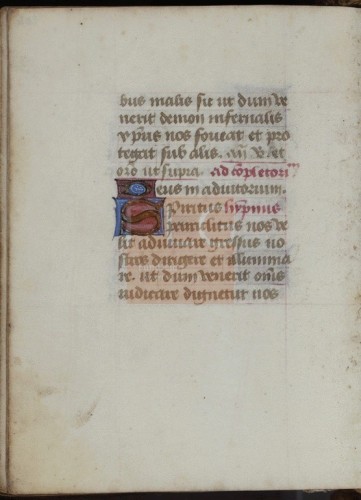 bus malis sit ut dum ve
nerit demon infernalis
xp̄us nos foveat et pro
tegat sub alis. an̄ v̄. et
oro ut supra ad cōpletoriū
Deus in adiutorium.
Spiritus hȳpnus
paraclitus nos ve
lit adiuvare gressus no
stros dirigere et illumina
re. ut dum venerit om̄s
iudicare dignetur nos